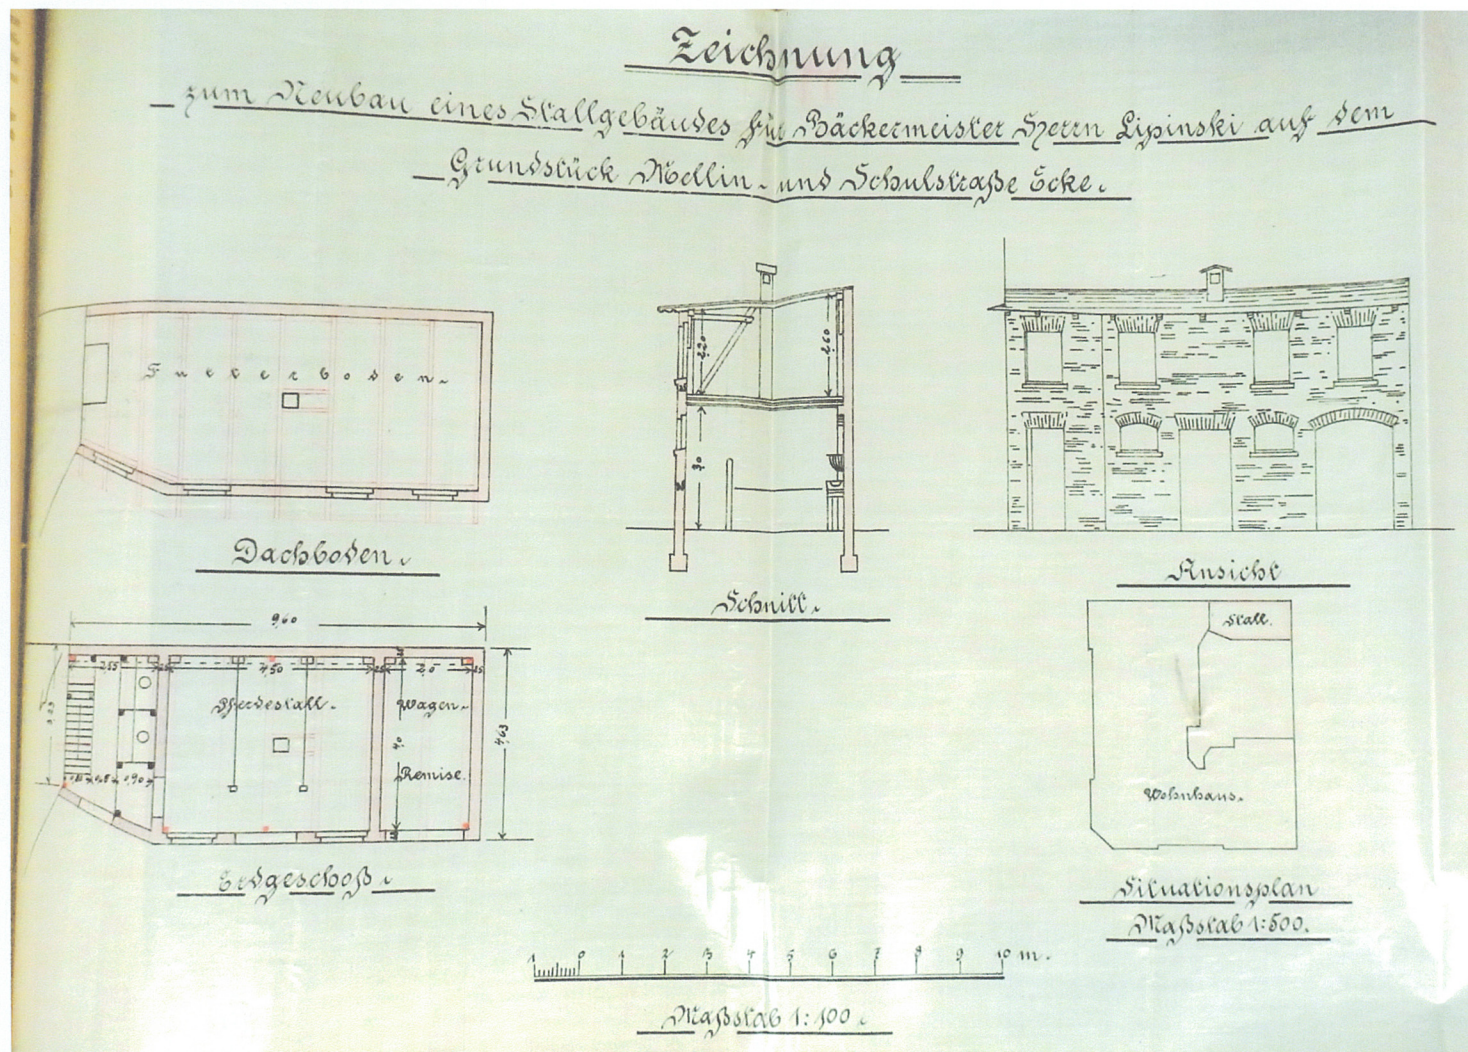 Zeichnung
zum Neubau eines Stallgebäudes für Bäckermeister Herrn Lipinski auf dem
Grundstück Mellin- und Schulstraße Ecke.
Futterboden.
Dachboden.
2,20
2,60
3,0
Schnitt.
Ansicht
9,60
2,55
25
4,50
25
2,0
25
Pferdestall.
Wagen-
Remise.
4,0
4,63
0,90
Erdgeschoß.
Stall.
Wohnhaus.
Situationsplan
Maßstab 1:500.
1 0 1 2 3 4 5 6 7 8 9 10 m.
Maßstab 1:100.